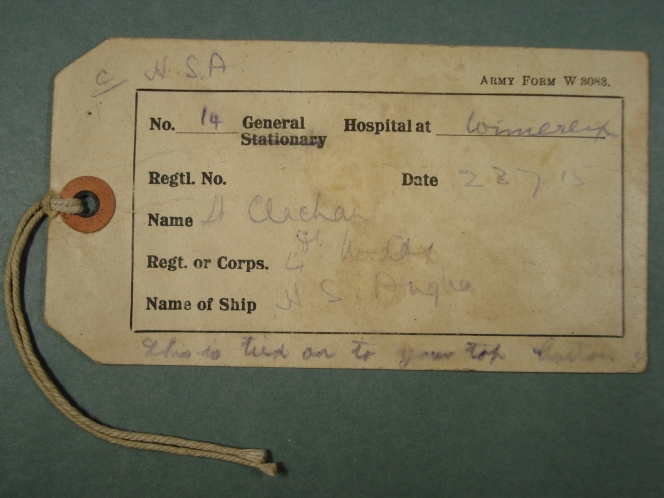 C H.S.A.
ARMY FORM W 3083.
No. 14 General Hospital at Wimereux
Stationary
Regtl. No. Date 23 7 15
Name Lt Clachan
Regt. or Corps. 4th
Name of Ship H S Anglia
This is tied on to your top button